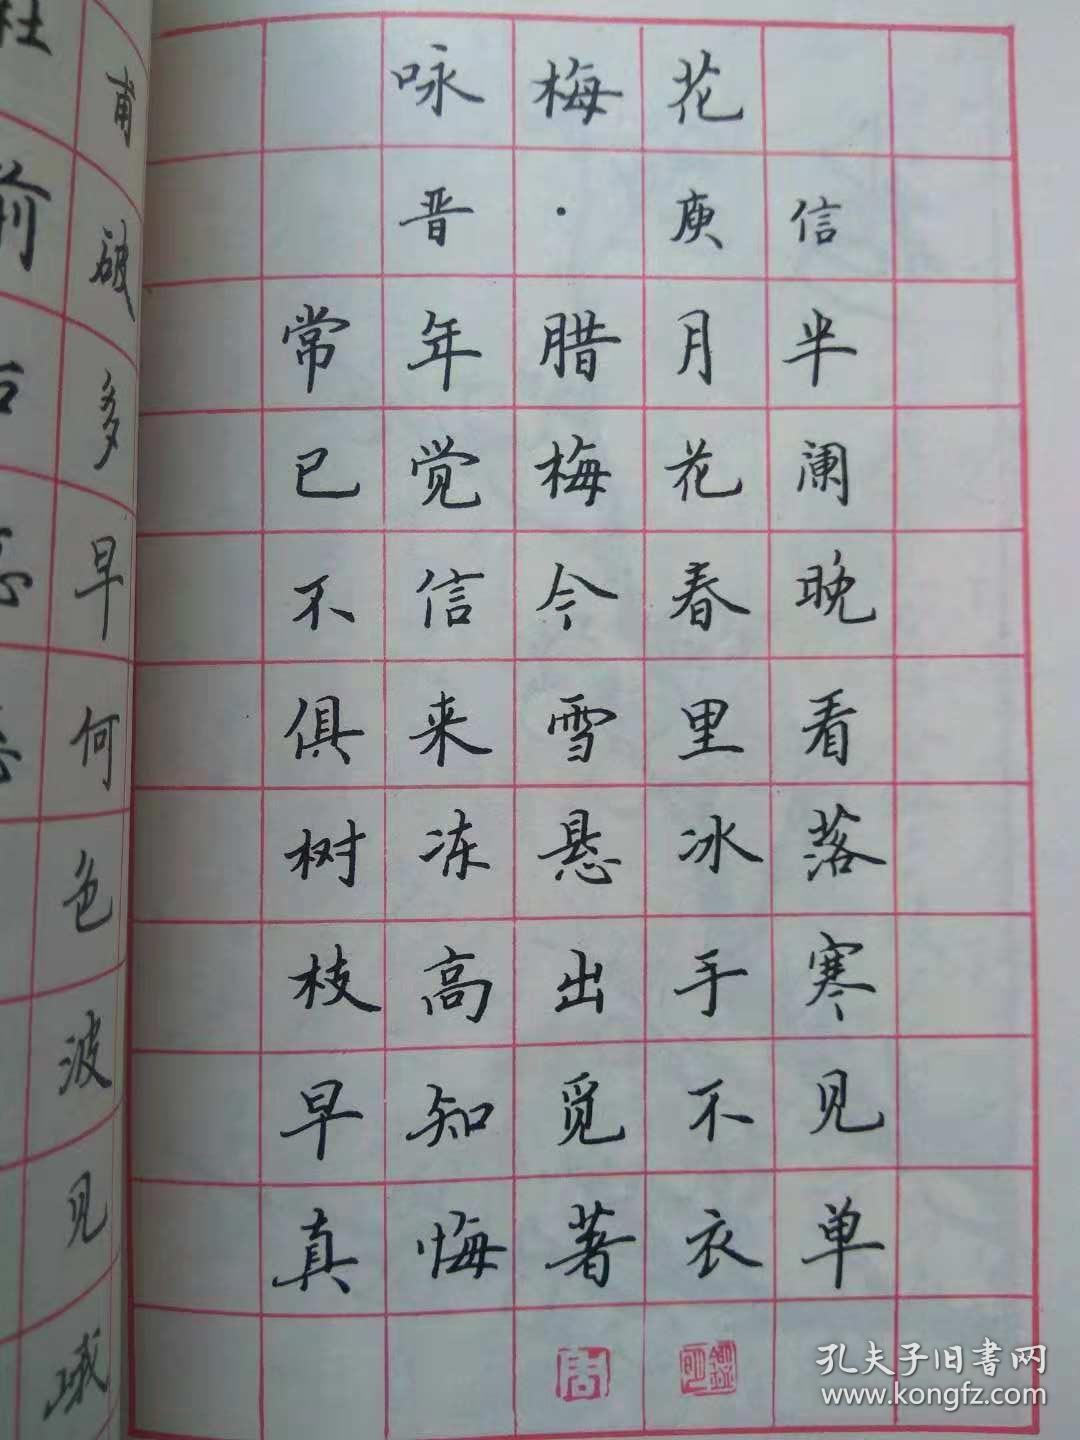 咏梅花
晋·庾信
常年腊月半
已觉梅花澜
不信今春晚
俱来雪里看
树冻悬冰落
枝高出手寒
早知觅不见
真悔著衣单
甫
破
多
早
何
色
波
见
前
孔夫子旧書网
www.kongfz.com